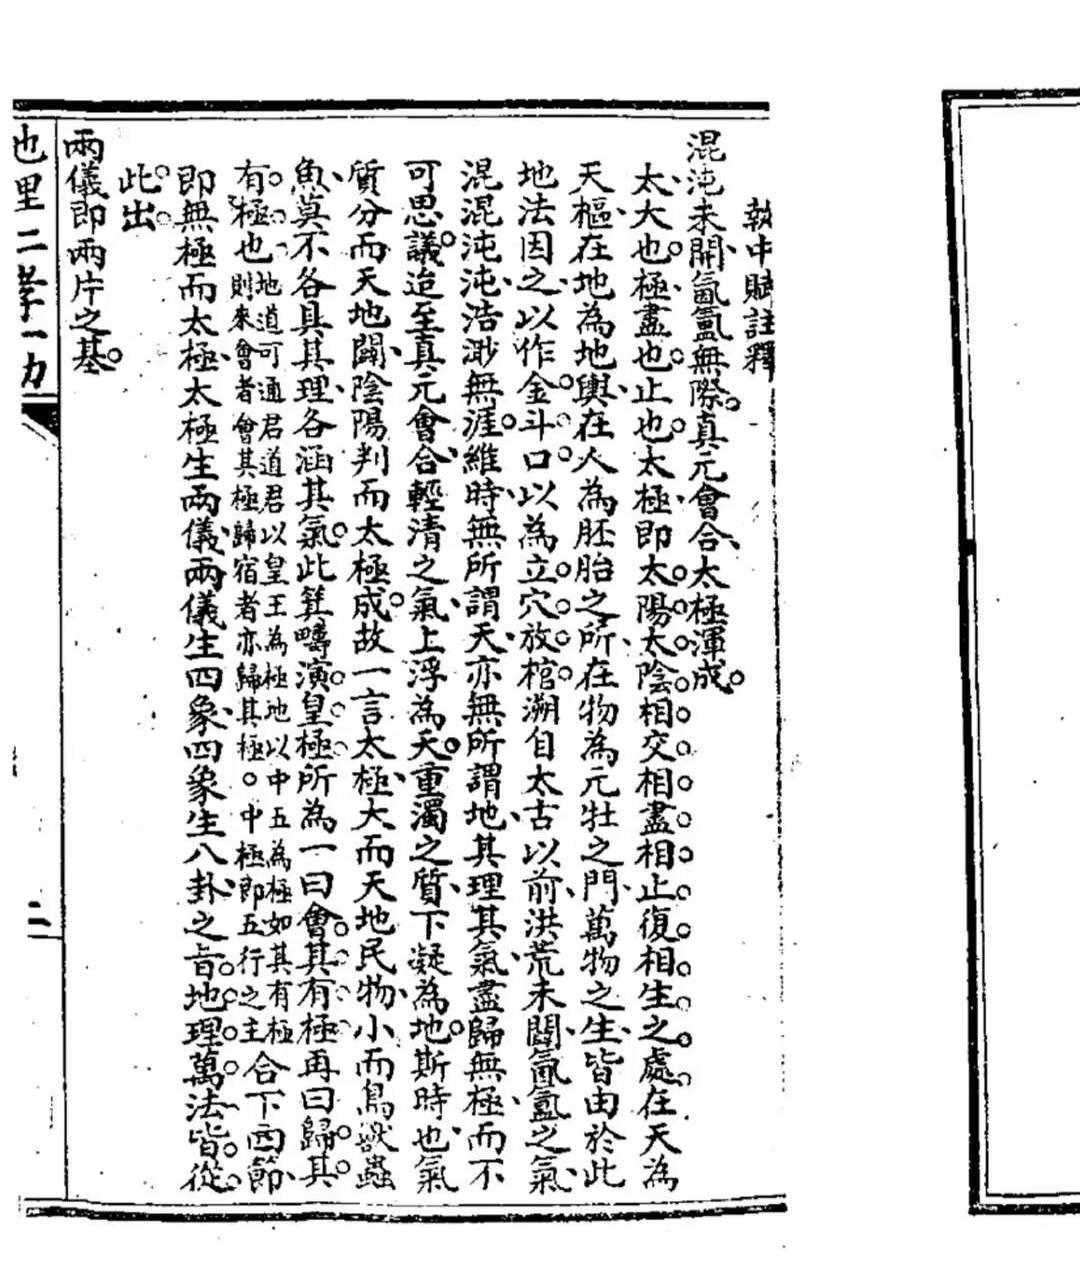 執中賦註釋
混沌未開氤氳無際真元會合太極渾成
太大也極盡也止也太極即太陽太陰相交相盡相止復相生之處在天為
天樞在地為地輿在人為胚胎之所在物為元牡之門萬物之生皆由於此
地法因之以作金斗口以為立穴放棺溯自太古以前洪荒未闢氤氳之氣
混混沌沌浩渺無涯維時無所謂天亦無所謂地其理其氣盡歸無極而不
可思議迨至真元會合輕清之氣上浮為天重濁之質下凝為地斯時也氣
質分而天地闢陰陽判而太極成故一言太極大而天地民物小而鳥獸蟲
魚莫不各具其理各涵其氣此箕疇演皇極所為一曰會其有極再曰歸其
有極也
地道可通君道君以皇王為極地以中五為極如其有極
則來會者會其極歸宿者亦歸其極。中極即五行之主
合下四節
即無極而太極太極生兩儀兩儀生四象四象生八卦之旨地理萬法皆從
此出
兩儀即兩片之基
二